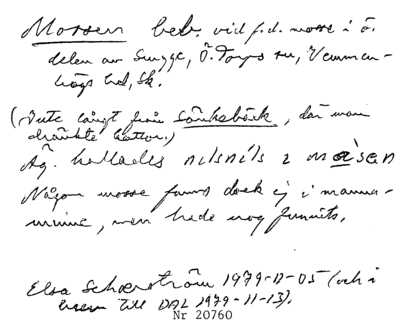 Mossen beb. vid f.d. mosse i ö.
delen av Snygge, Ö. Torps sn, Vemmen-
högs hd, Sk.
(Inte långt från Sänkebäck, där man
dränkte kattor.)
Äg. kallades nilsnils i måsen
Någon mosse fanns dock ej i manna-
minne, men hade nog funnits.
Elsa 1979-11-05 (och i
brev till DAL 1979-11-13).
Nr 20760